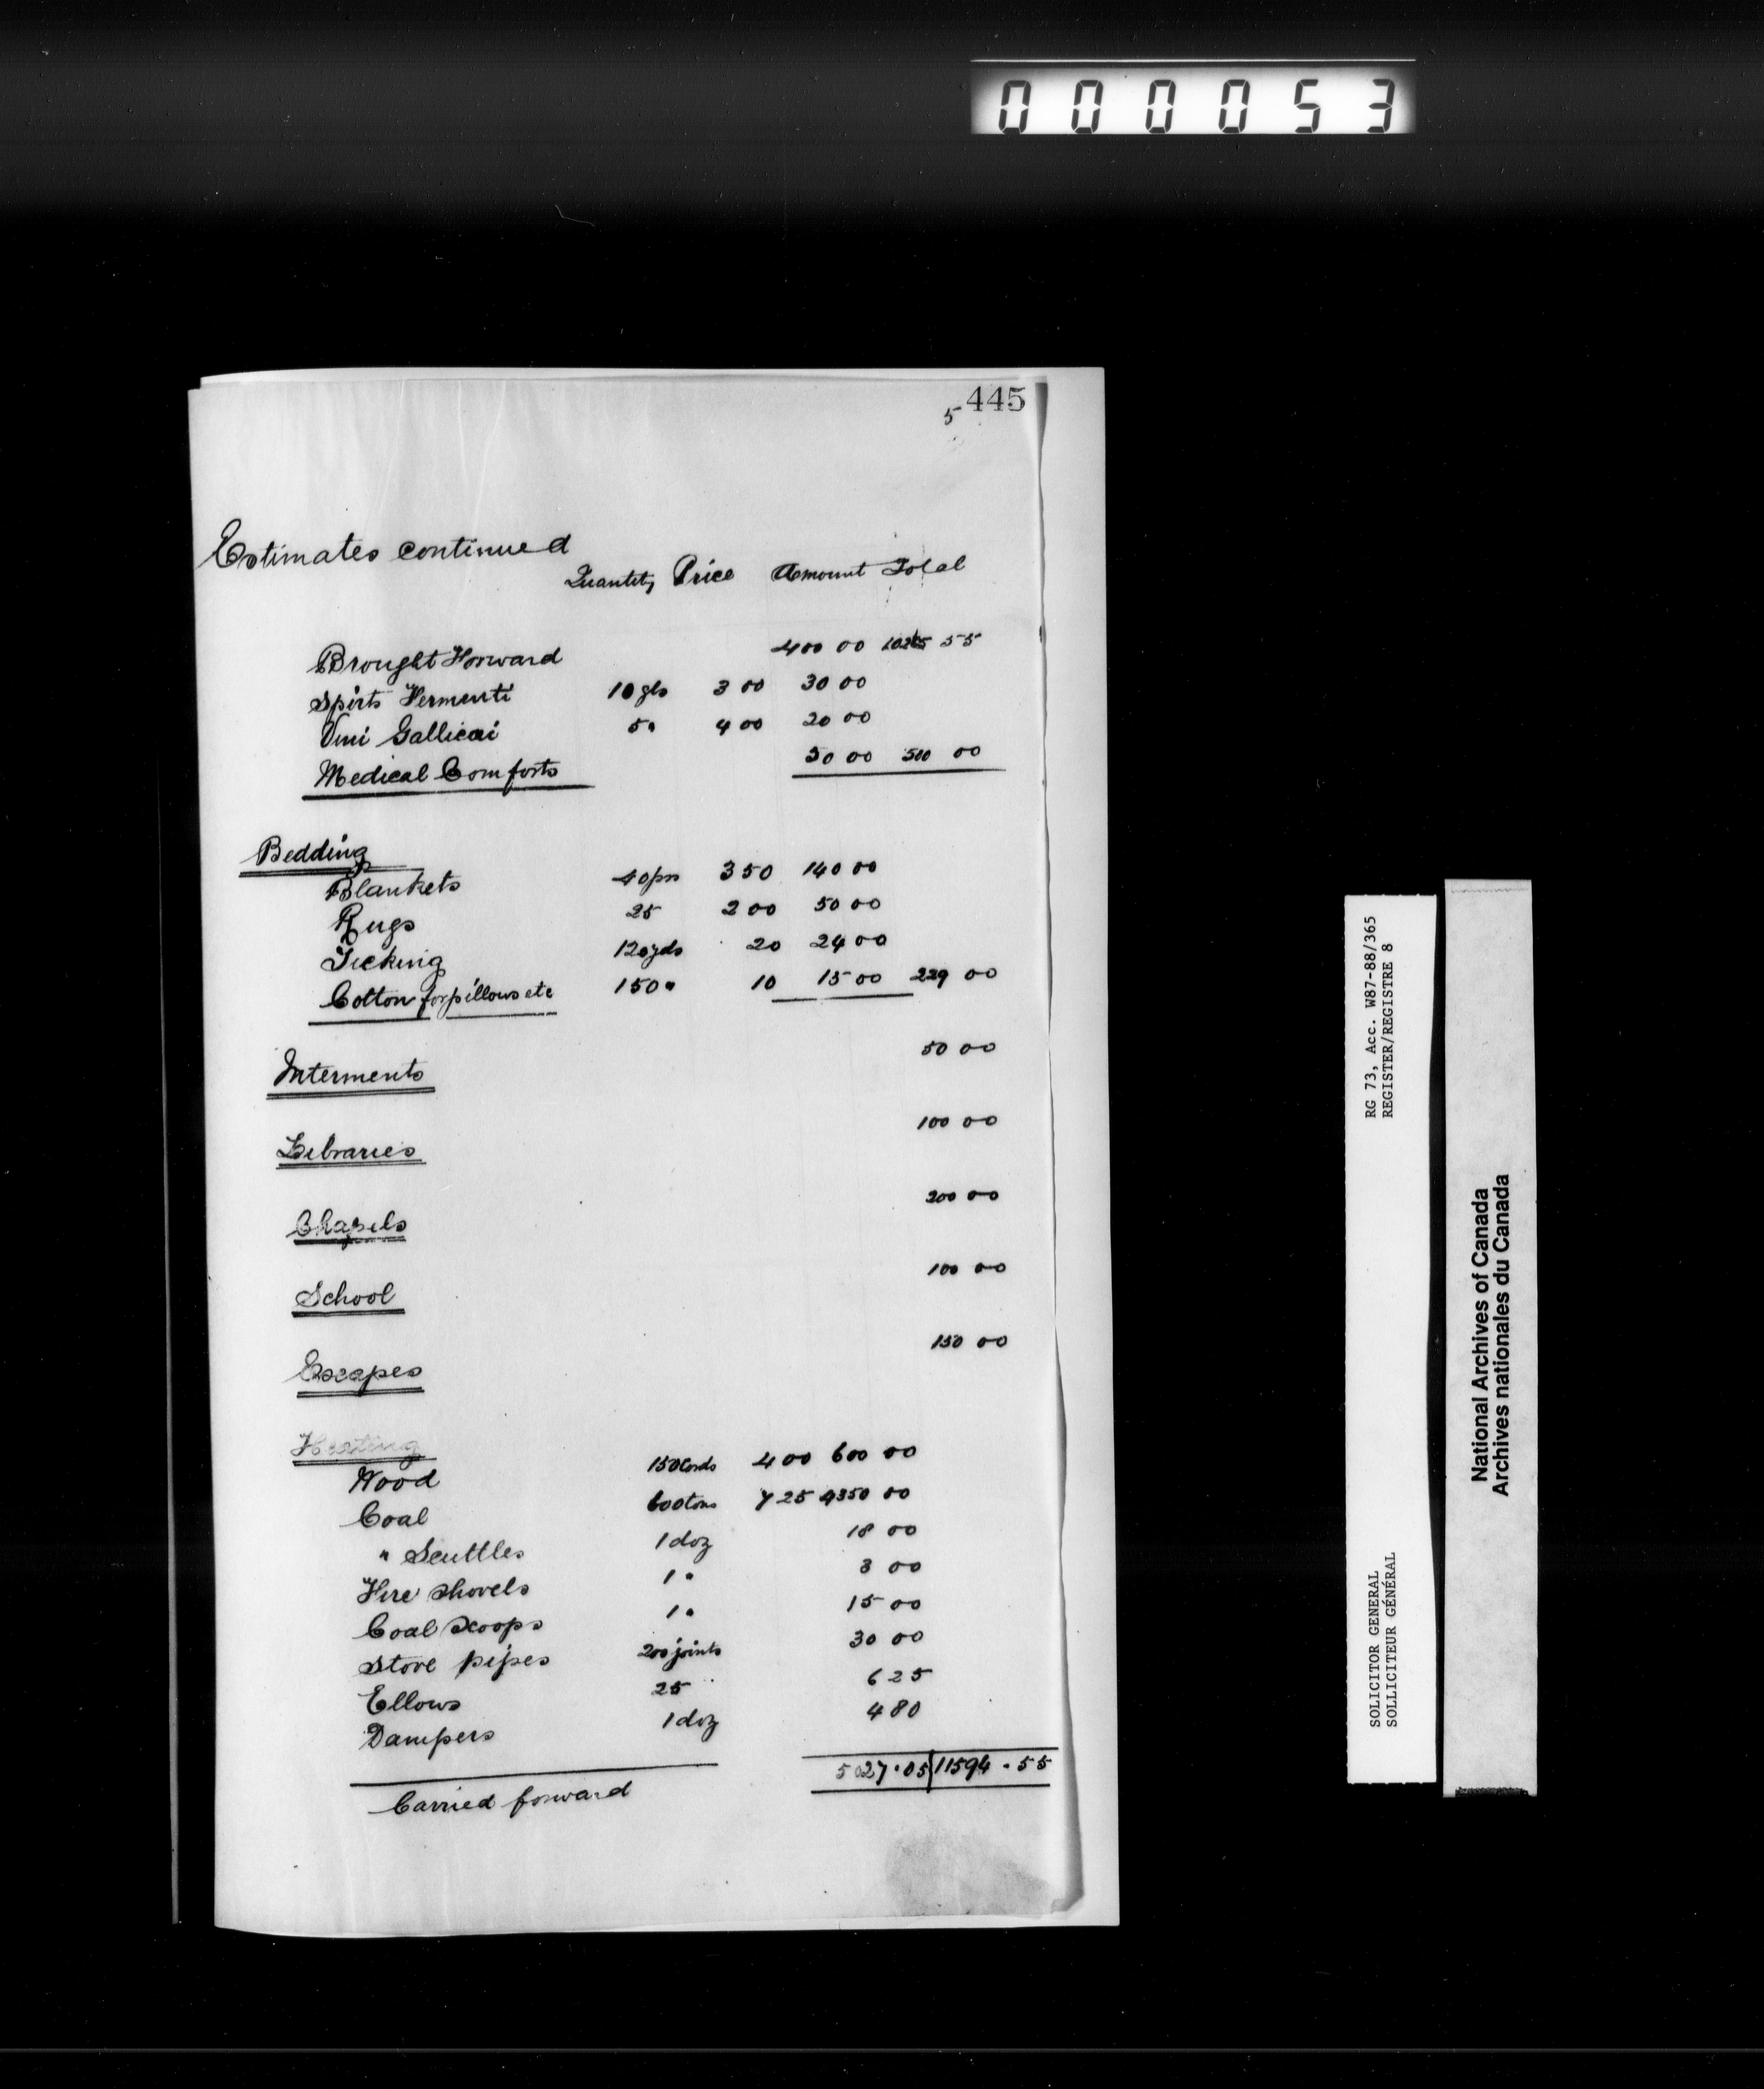 000053
5 445
Estimates continued
Quantity Price Amount Total
Brought Forward 400 00 10265 55
Spirts Fermenti 10 gls 3 00 30 00
Vini Gallicai 5 " 4 00 20 00
Medical Comforts 50 00 500 00
Bedding
Blankets 40 prs 3 50 140 00
Rugs 25 2 00 50 00
Ticking 120 yds 20 24 00
Cotton for pillows etc 150 " 10 15 00 229 00
Interments 50 00
Libraries 100 00
Chapels 200 00
School 100 00
Escapes 150 00
Heating
Wood 150 Cords 4 00 600 00
Coal 600 tons 7 25 4350 00
" Scuttles 1 doz 18 00
Fire Shovels 1 " 3 00
Coal Scoops 1 " 15 00
Stove pipes 200 joints 30 00
Ellows 25 " 6 25
Dampers 1 doz 4 80
Carried forward 5027.05 11594.55
RG 73, Acc. W87-88/365
REGISTER/REGISTRE 8
SOLICITOR GENERAL
SOLLICITEUR GÉNÉRAL
National Archives of Canada
Archives nationales du Canada